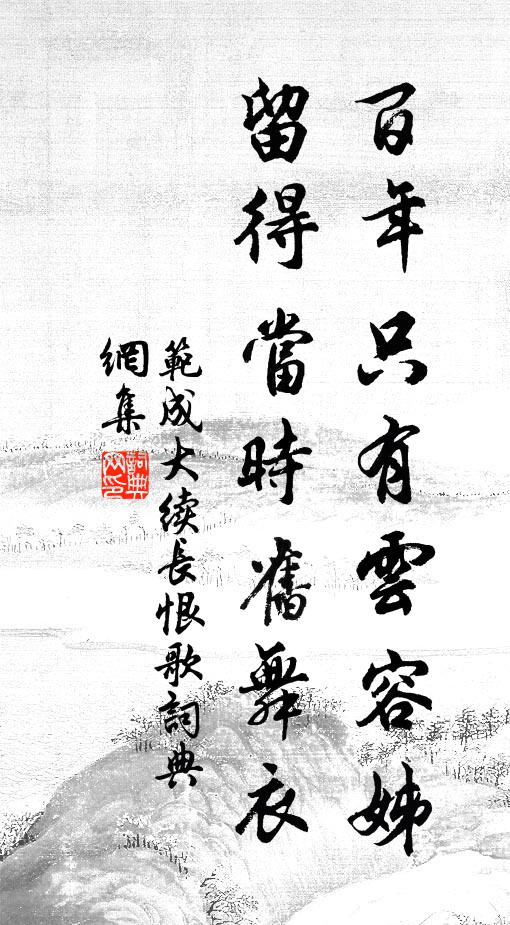 百年只有雲容姊
留得當時舊舞衣
範成大續長恨歌詞典
網集
詞典網印